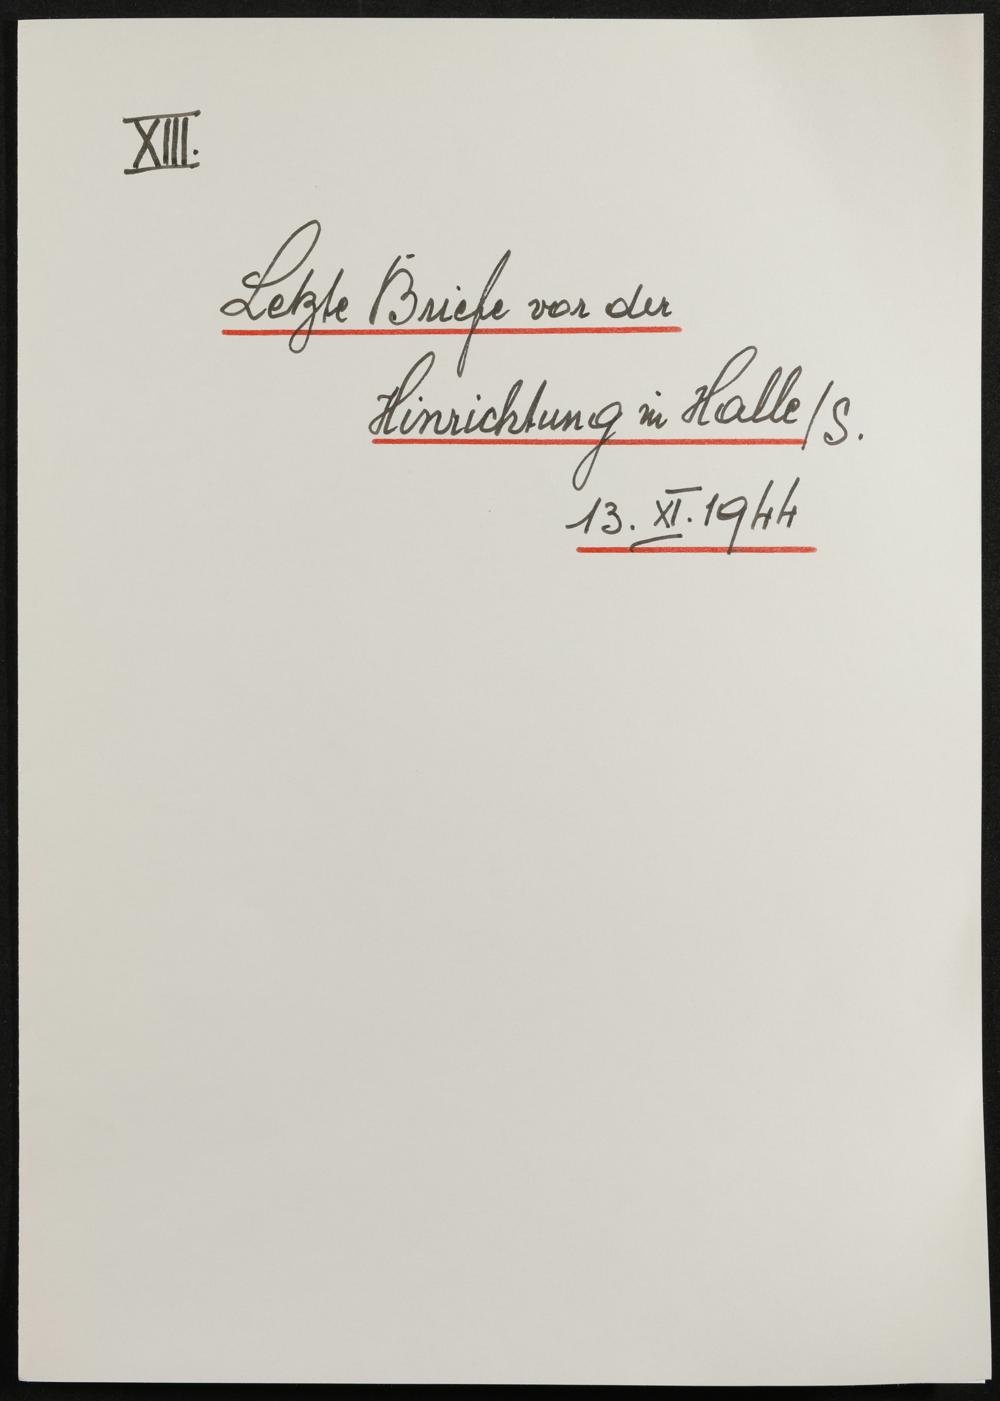 XIII.
Letzte Briefe vor der
Hinrichtung in Halle/S.
13. XI. 1944